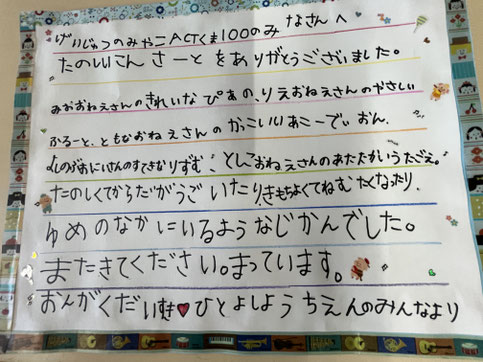 げいじゅつのみやこACTくま100のみなさんへ
たのしいこんさーとをありがとうございました。
みおおねえさんのきれいなぴあの、りえおねえさんのやさしい
ふるーと、ともなおねえさんのかっこいいあこーでぃおん、
しのぶおにいさんのすてきなりずむ、としこおねえさんのあたたかいうたごえ。
たのしくてからだがうごいたり、きもちよくてねむたくなったり、
ゆめのなかにいるようなじかんでした。
またきてください。まっています。
おんがくだいすき♥ひとよしようちえんのみんなより